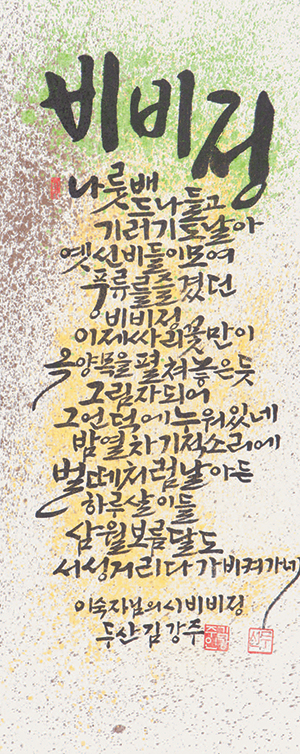 비비정
나룻배
두나들고
기러기도날아
옛선비들이모여
풍류를즐겼던
비비정
이제싸리꽃만이
옥양목을펼쳐놓은듯
그림자되어
그언덕에누워있네
밤열차기적소리에
벌떼처럼날아든
하루살이들
삼월보름달도
서성거리다가비켜가네
이숙자님의시비비정
두산김강주